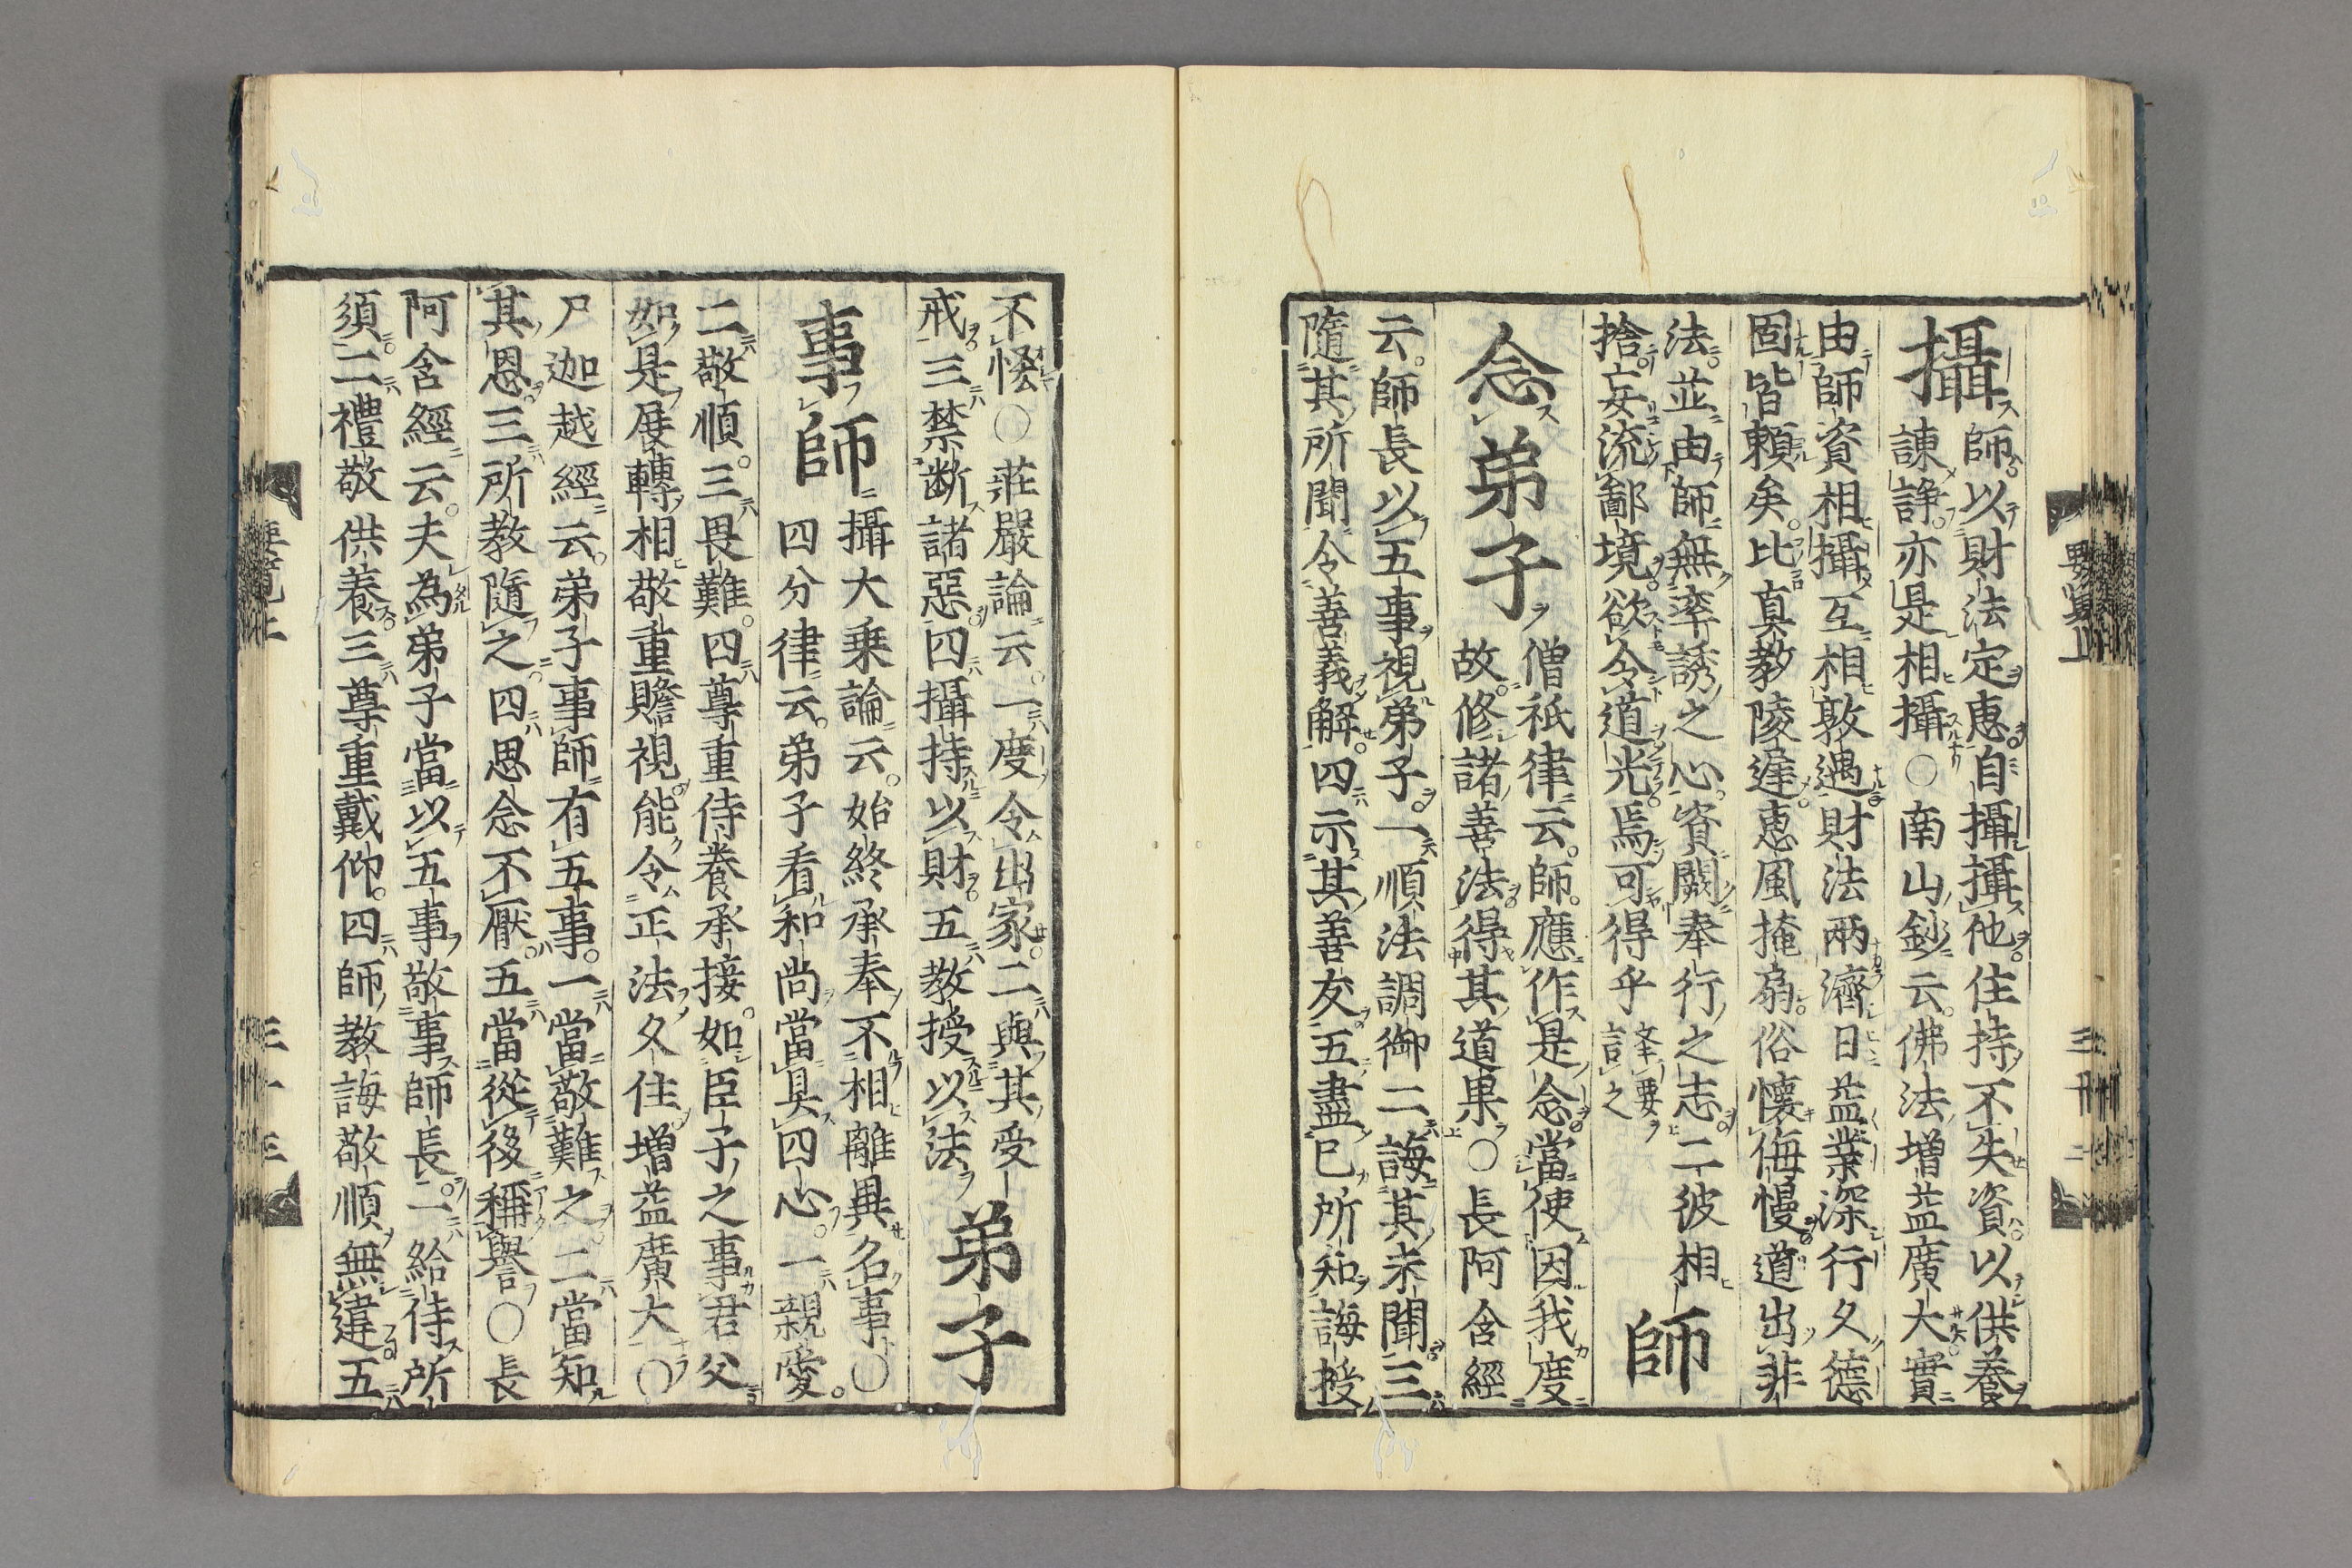 攝師以財法定惠自攝攝他住持不失資以供養
諫諍亦是相攝○南山鈔云佛法増益廣大實
由師資相攝互相敦遇財法兩濟日益業深行久德
固皆頼矣比真教陵遅惠風掩扇俗懐侮慢道出非
法並由師無率誘之心資闕奉行之志二彼相師
捨妄流鄙境欲令道光焉可得乎
言之
念弟子僧祇律云師應作是念當使因我度
故修諸善法得其道果○長阿含經
云師長以五事視弟子一順法調御二誨其未聞三
隨其所聞令善義解四示其善友五盡已所知誨授
不悋○荘嚴論云一度令出家二與其受弟子
戒三禁断諸惡四攝持以財五教授以法
事師攝大乗論云始終承奉不相離異名事○
四分律云弟子看和尚當具四心一親愛
二敬順三畏難四尊重侍養承接如臣子之事君父
如是展轉相敬重瞻視能令正法久住増益廣大○
尸迦越經云弟子事師有五事一當敬難之二當知
其恩三所教隨之四思念不厭五當從後稱譽○長
阿含經云夫為弟子當以五事敬事師長一給侍所
須二禮敬供養三尊重戴仰四師教誨敬順無違五